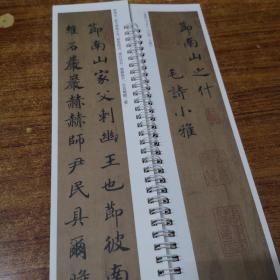 節南山之什
毛詩小雅
節南山家父刺幽王也節彼南
維石巖巖赫赫師尹民具爾瞻